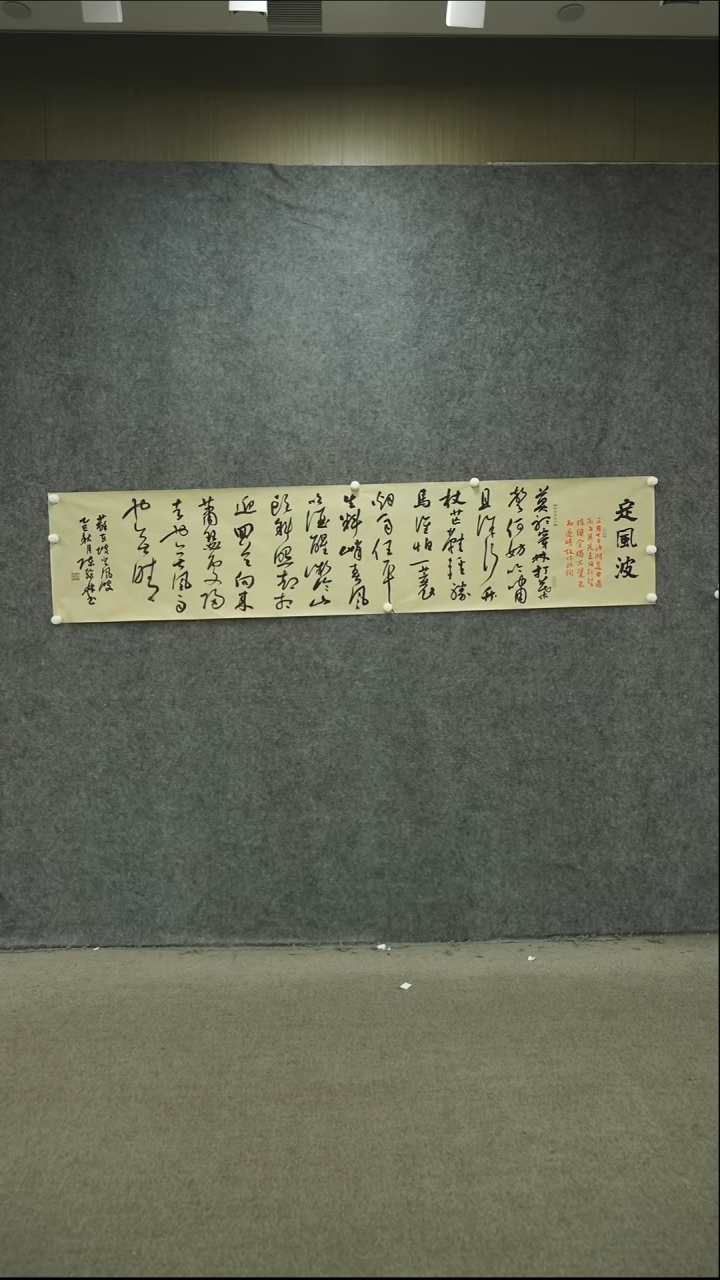 定風波
三月七日沙湖道中遇
雨雨具先去同行皆
狼狽余獨不覺已
而遂晴故作此詞
莫聽穿林打葉
聲何妨吟嘯
且徐行竹
杖芒鞋輕勝
馬誰怕一蓑
烟雨任平
生料峭春風
吹酒醒微冷山
頭斜照却相
迎回首向來
蕭瑟處歸
去也无風雨
也无晴
蘇東坡定風波
乙巳秋月